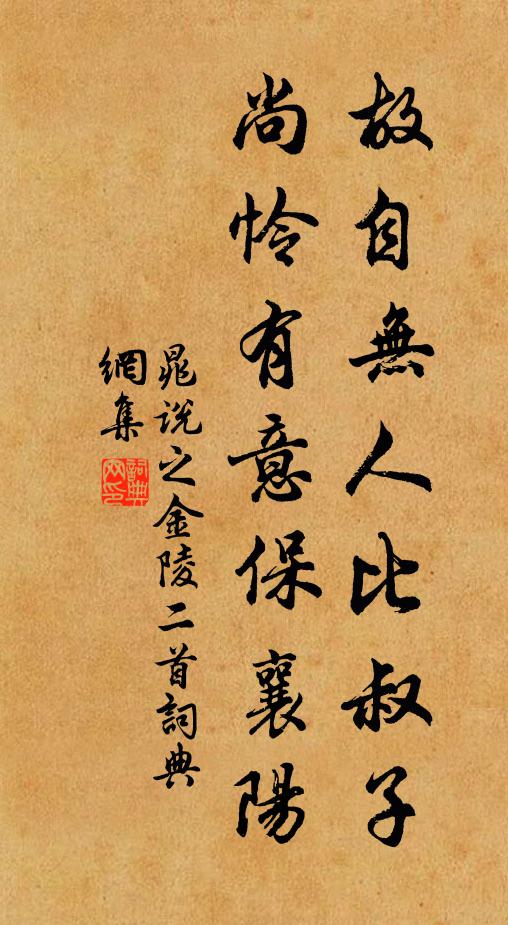 故自無人比叔子
尚怜有意保襄陽
晁說之金陵二首詞典
網集
詞典
网印